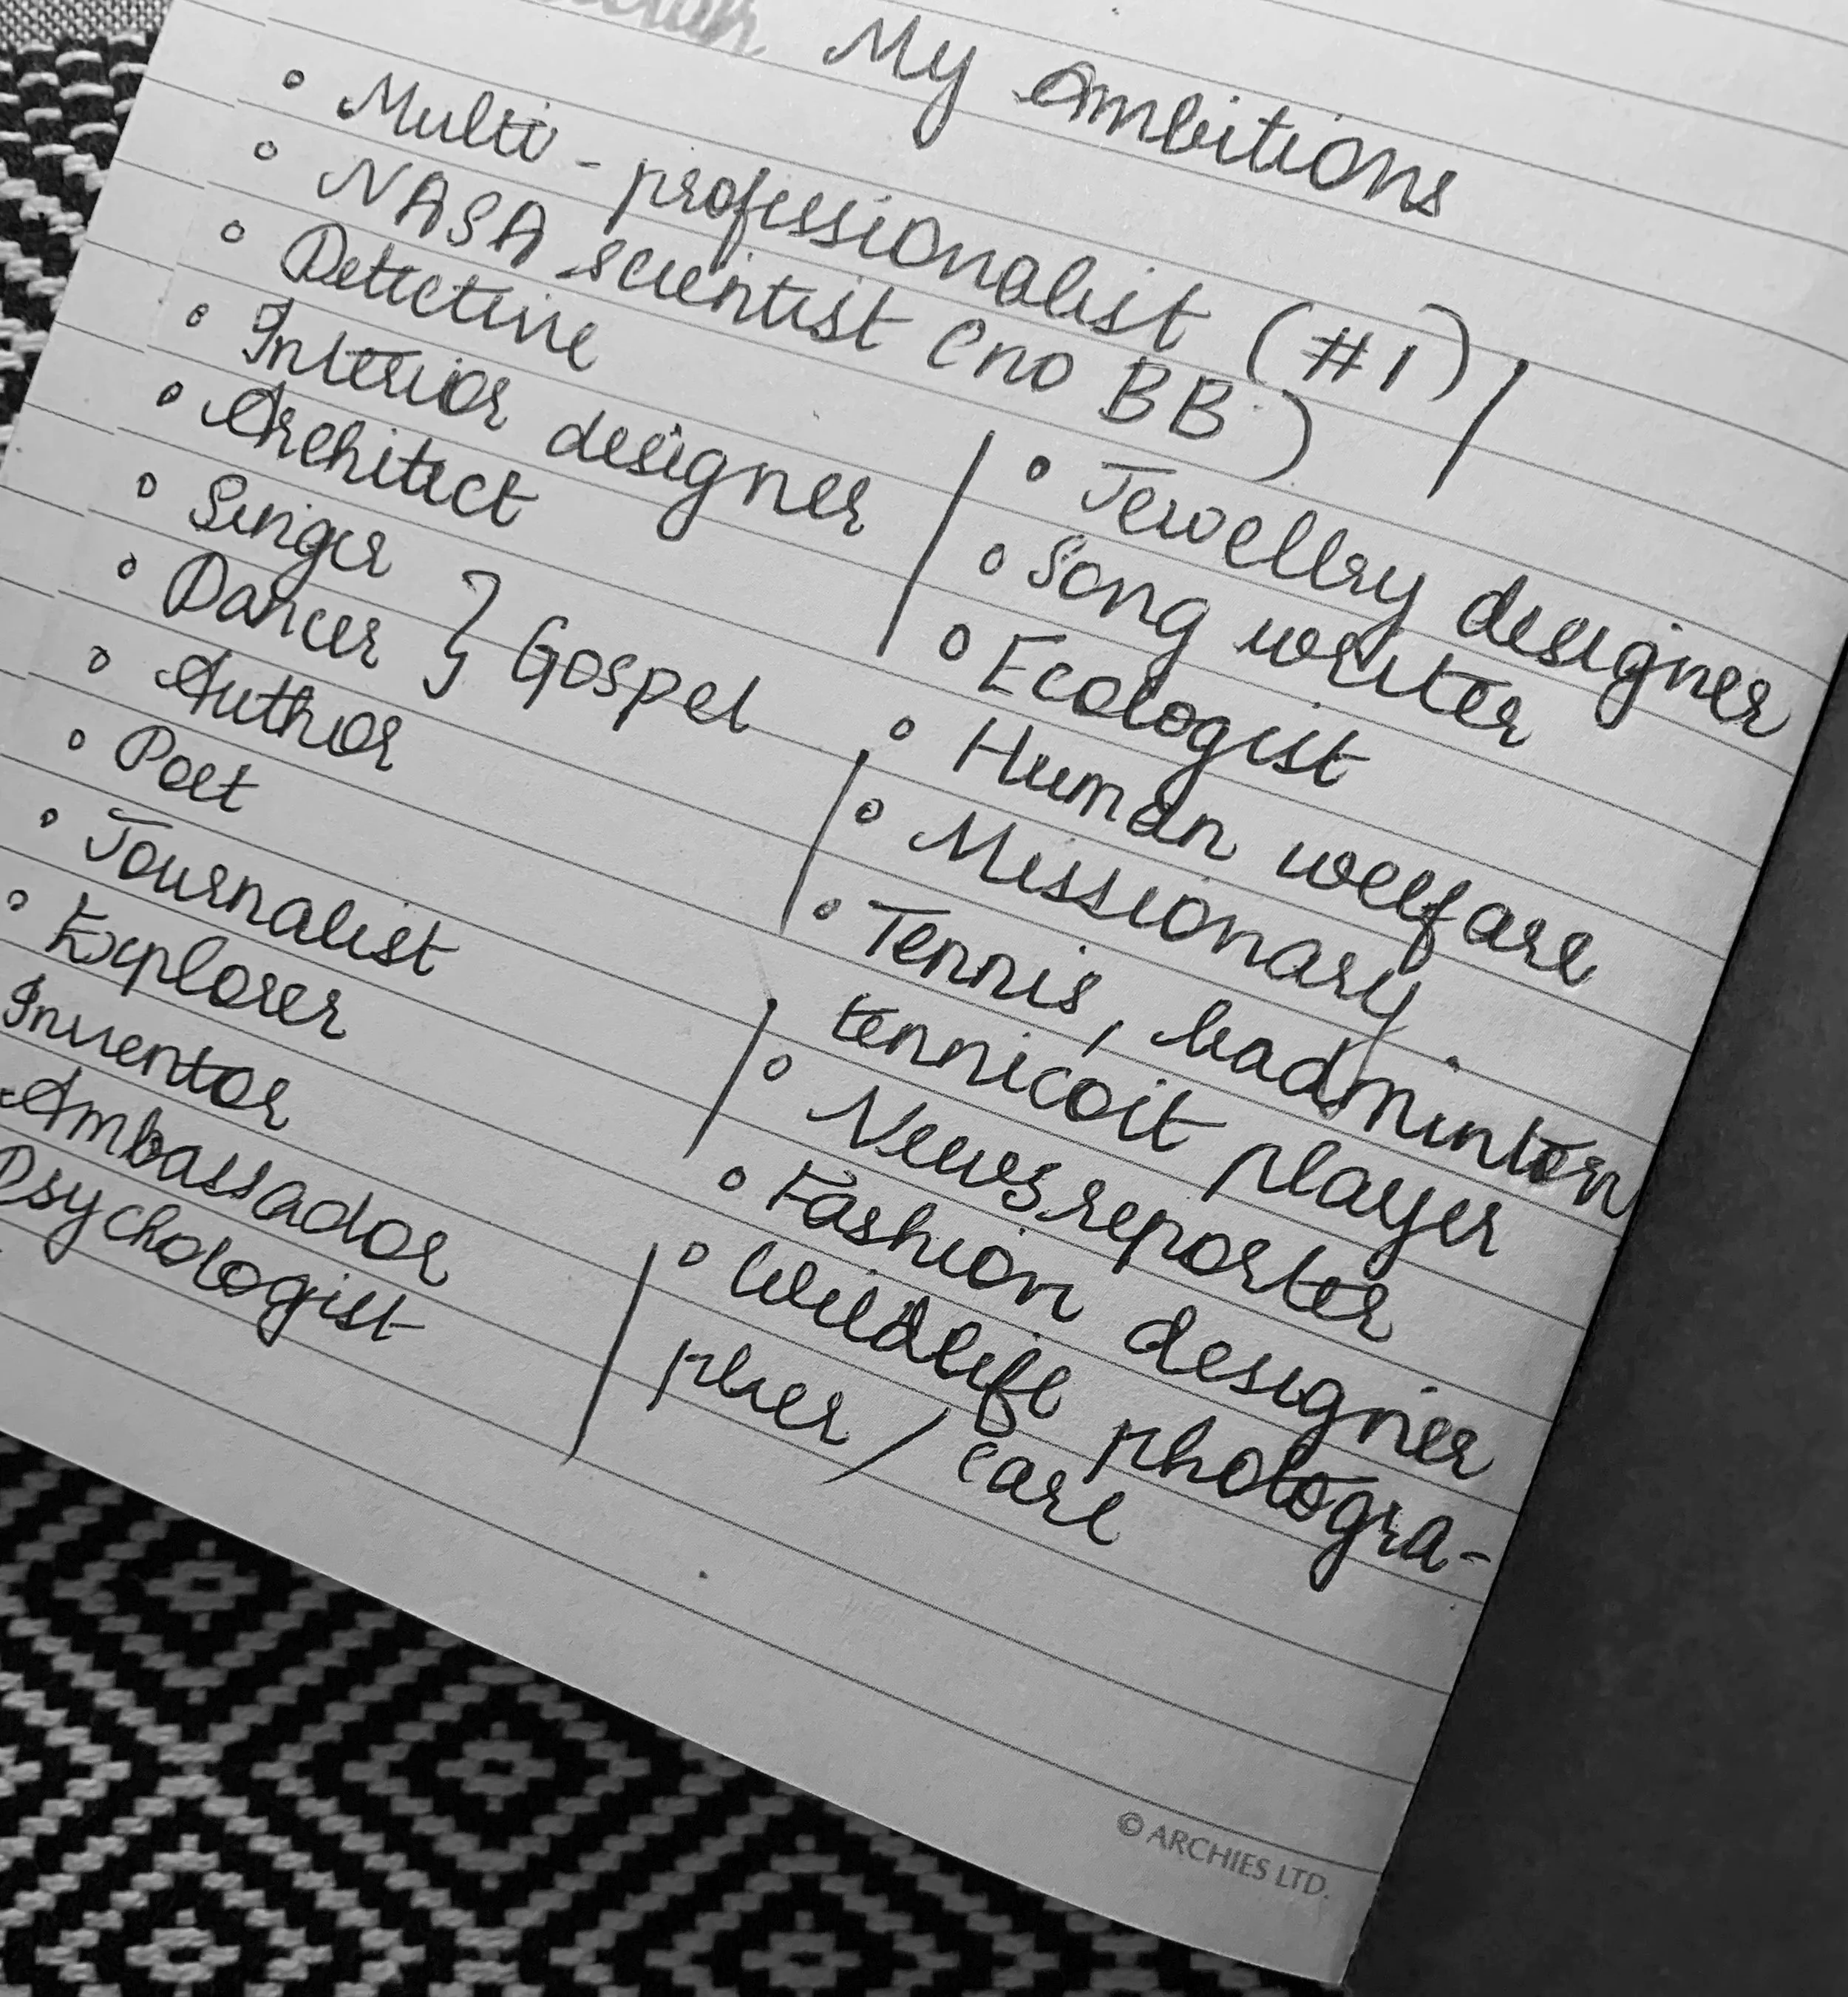 My Ambitions
• Multi-professionalist (#1)
• NASA scientist (no BB)
• Detective
• Interior designer
• Architect
• Singer
• Dancer } Gospel
• Author
• Poet
• Journalist
• Explorer
Inventor
Ambassador
Psychologist
• Jewellry designer
• Song writer
• Ecologist
• Human welfare
• Missionary
• Tennis, badminton
tennicoit player
• News reporter
• Fashion designer
• Wildlife photogra-
pher / care
© ARCHIES LTD.